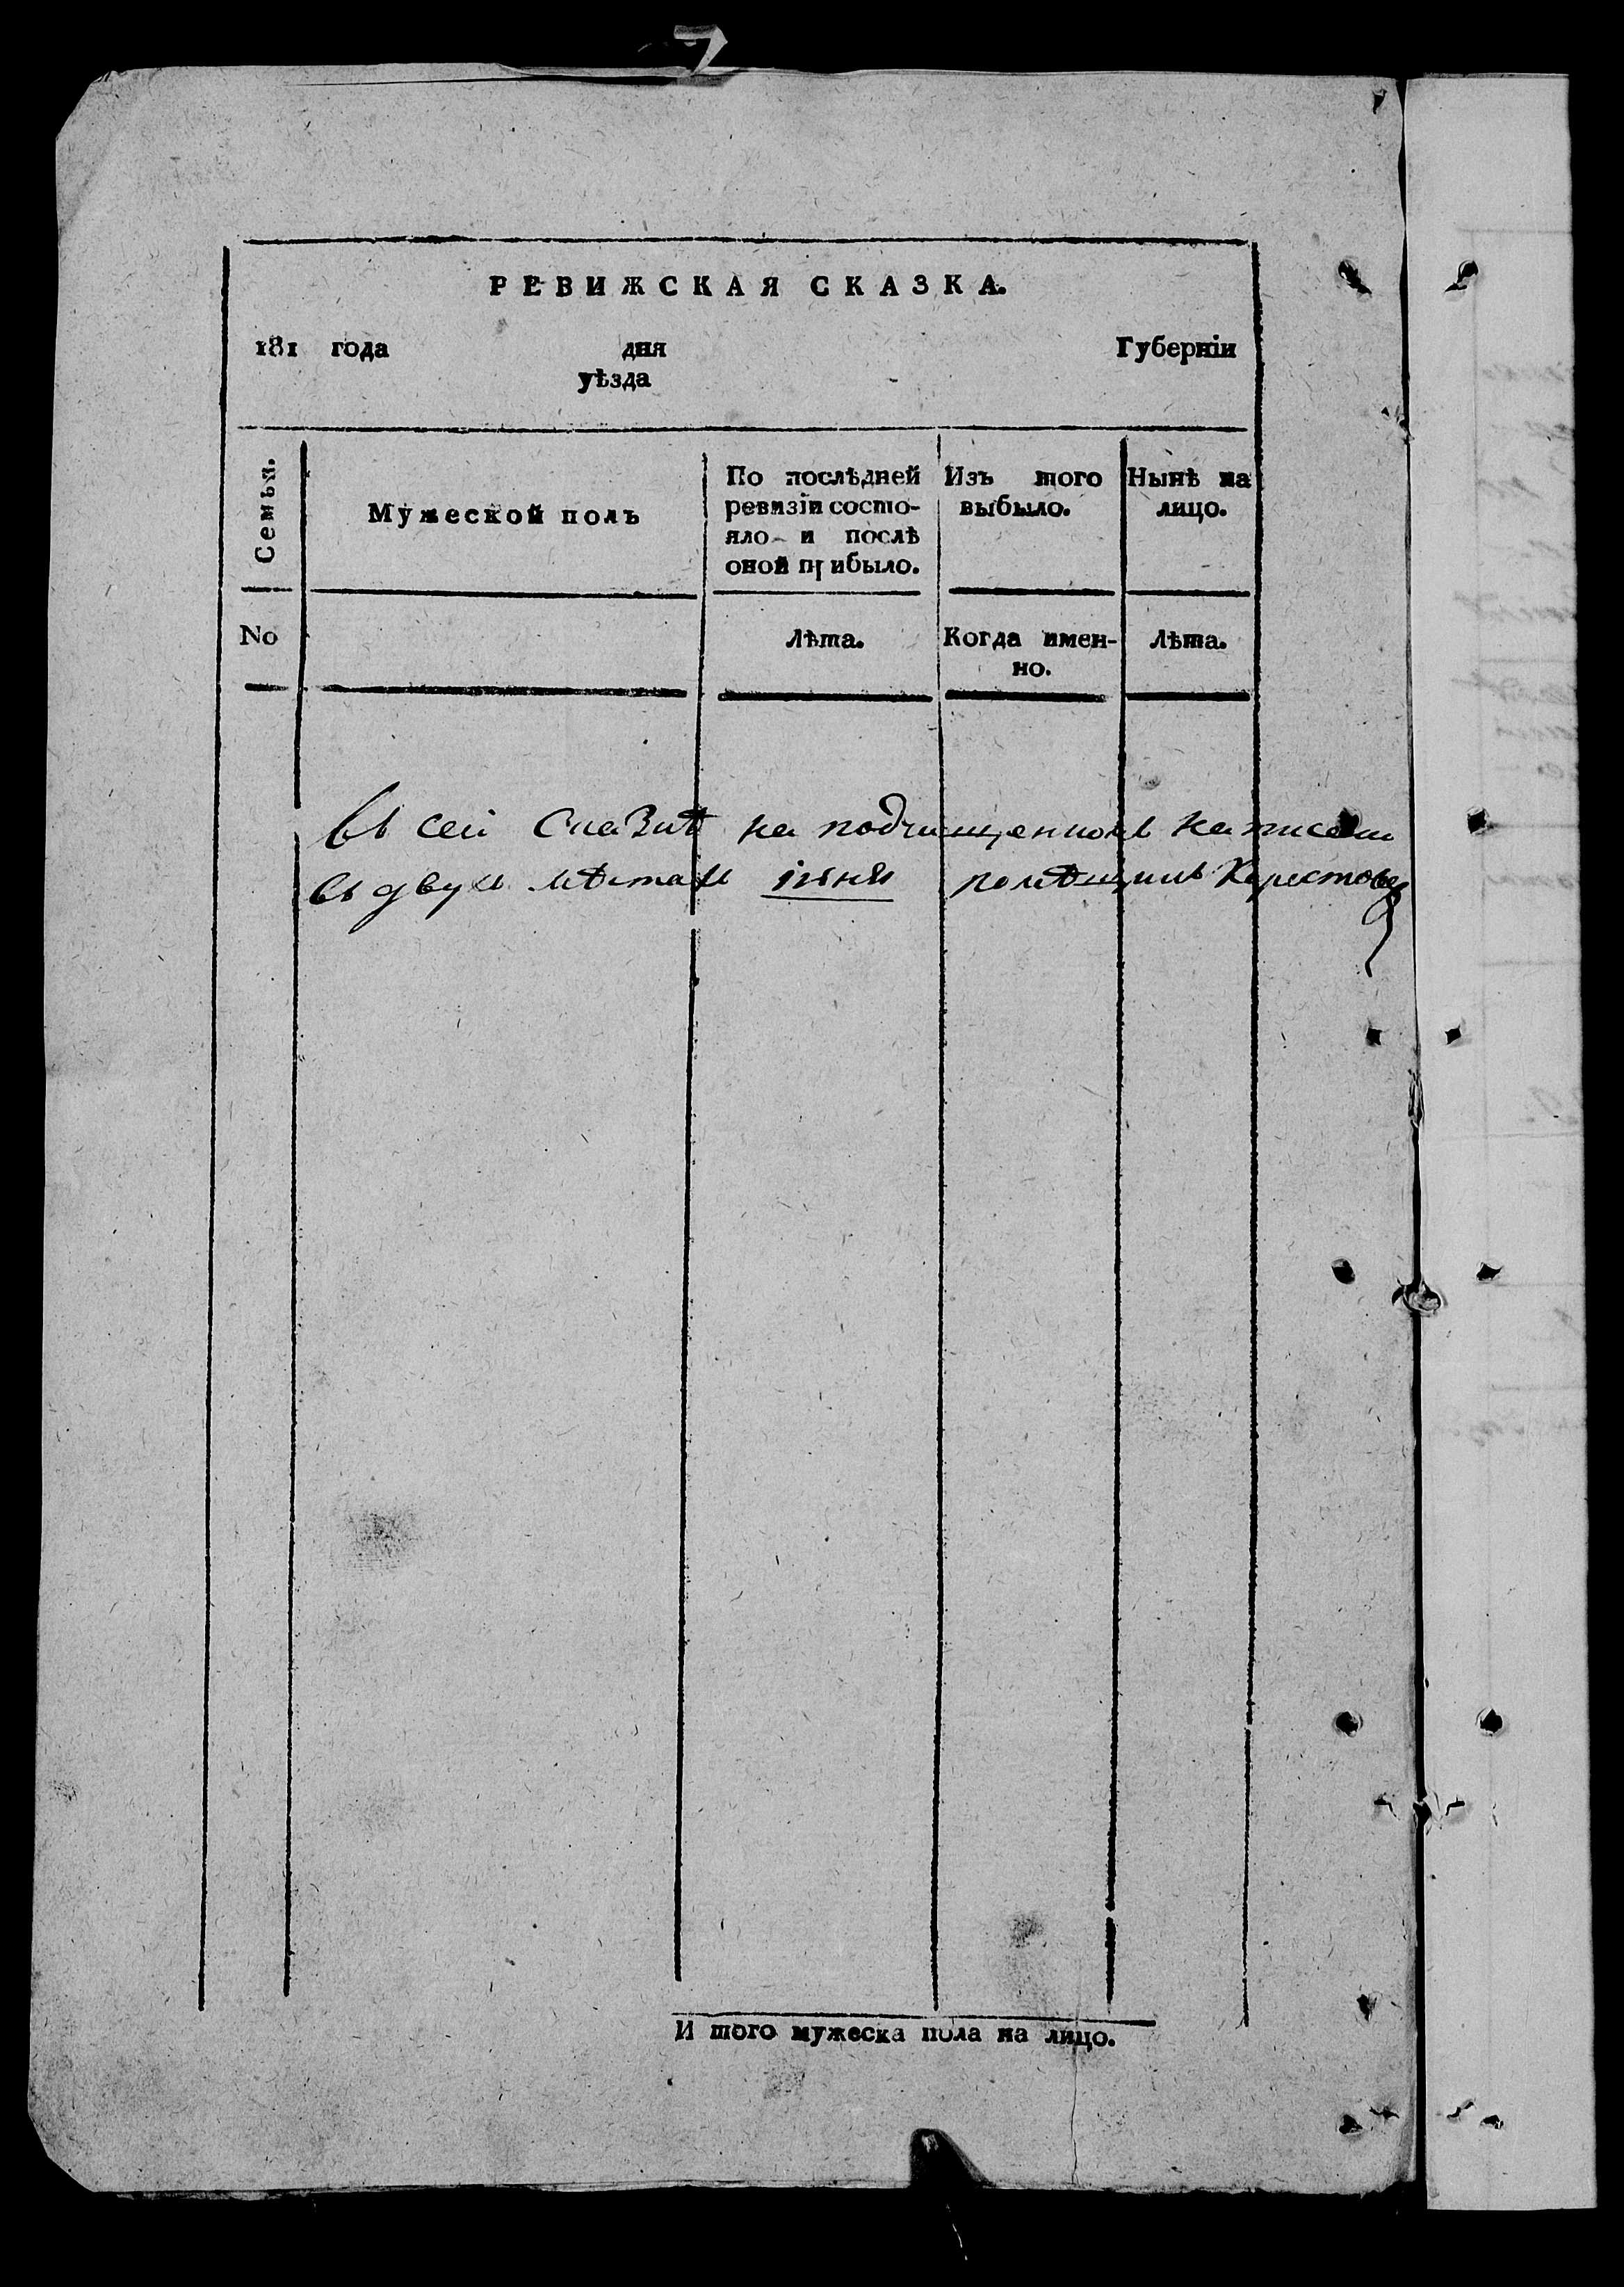 РЕВИЖСКАЯ СКАЗКА.
181 года дня Губерніи
уѣзда
Семья.
Мужеской полъ
По послѣдней
ревизіи состо-
яло и послѣ
оной прибыло.
Изъ того
выбыло.
Нынѣ на
лицо.
No
Лѣта.
Когда имен-
но.
Лѣта.
Въ сей Сказкѣ на подчищенномъ написано
въ двухъ мѣстахъ іюня помѣщикъ
И того мужеска пола на лицо.